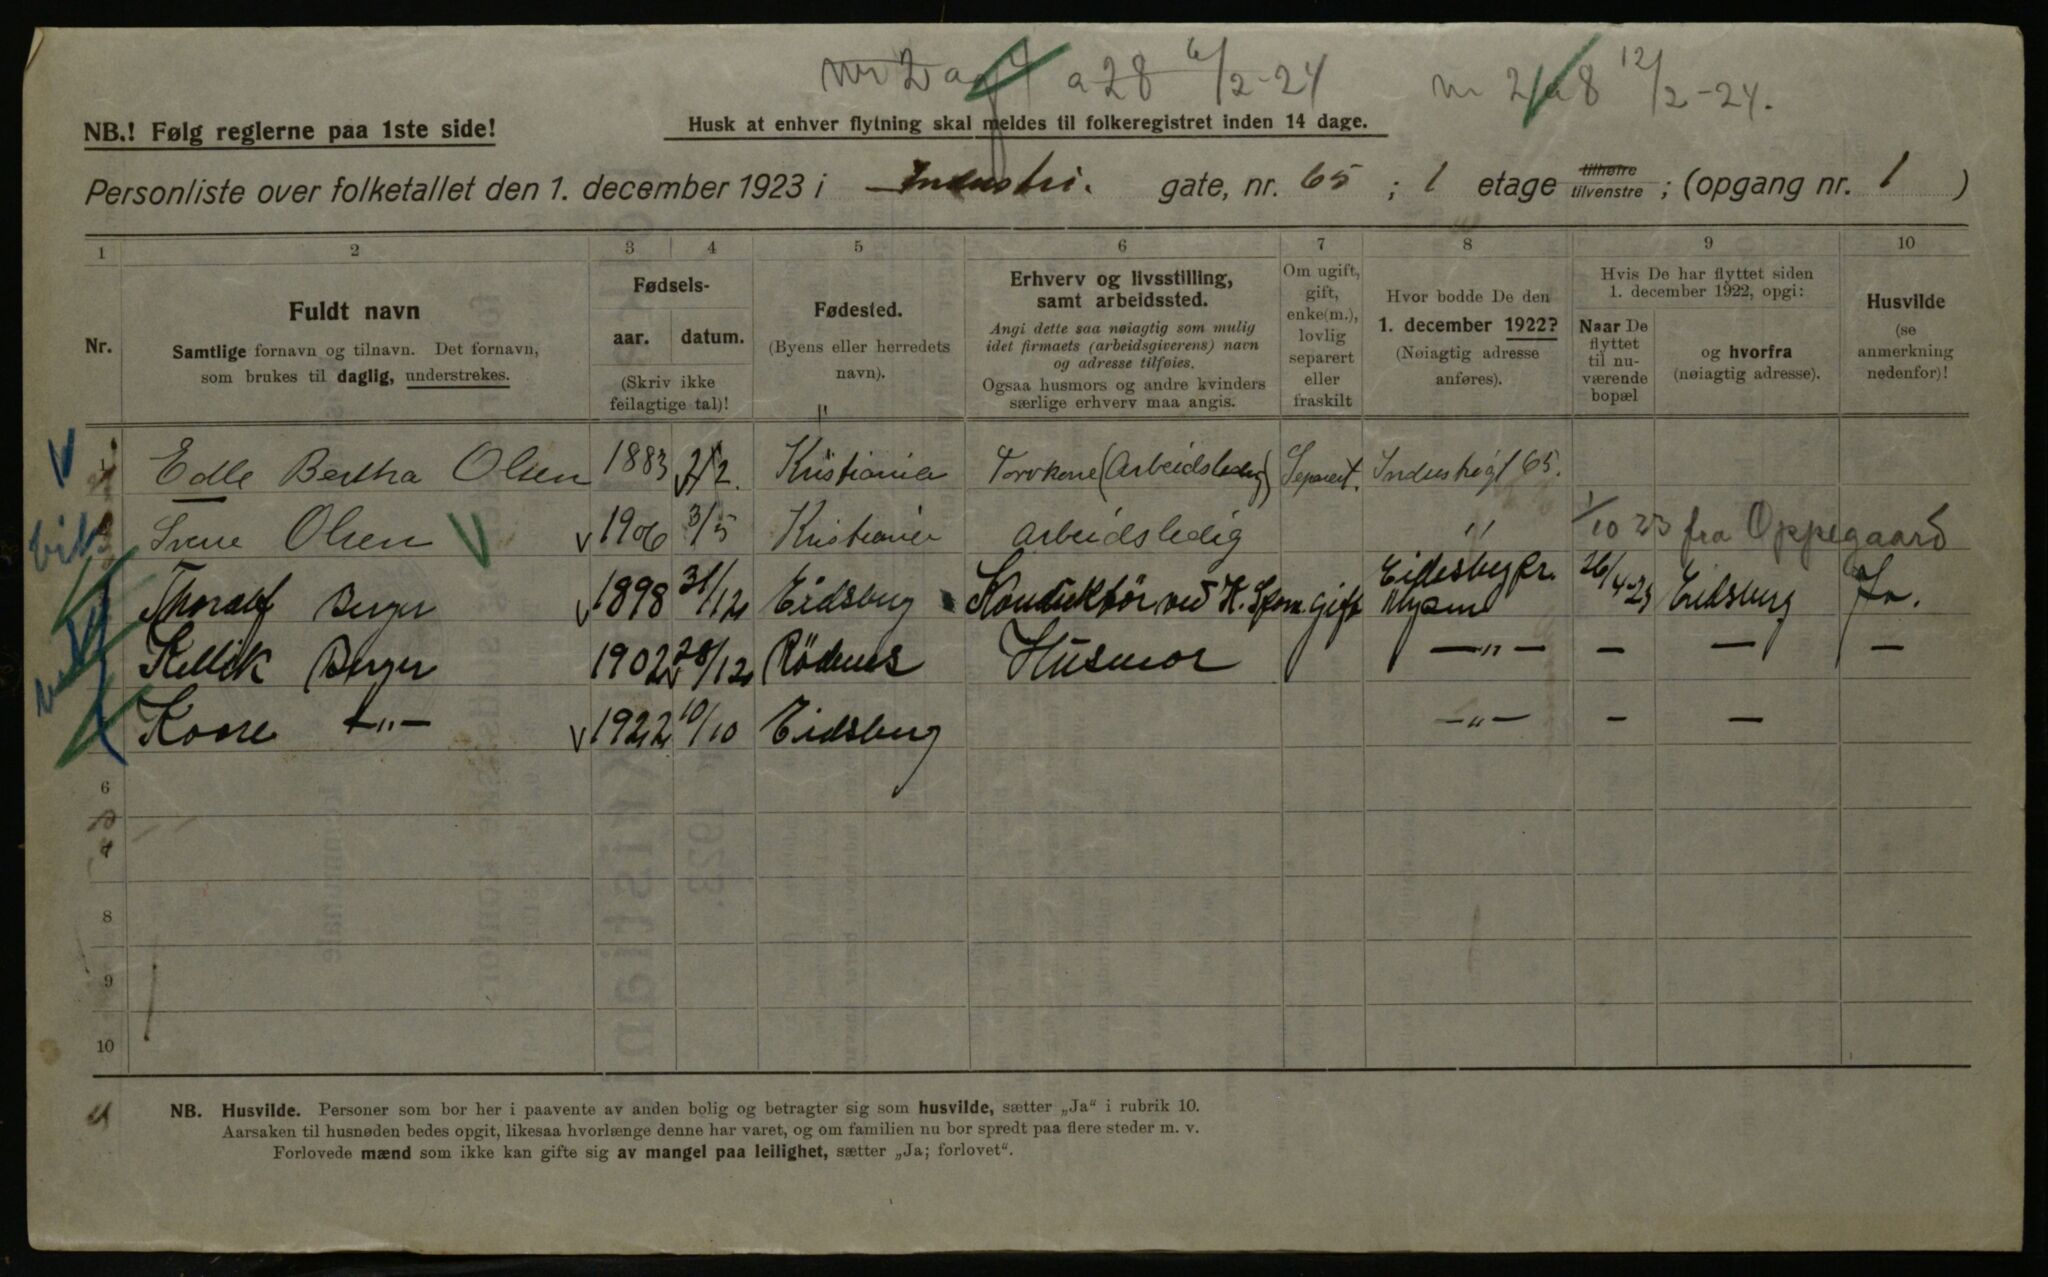 a 28 6/2-24
12/2-24.
NB.! Følg reglerne paa 1ste side!
Husk at enhver flytning skal meldes til folkeregistret inden 14 dage.
Personliste over folketallet den 1. december 1923 i Industri. gate, nr. 65 ; 1 etage tilhøire tilvenstre ; (opgang nr. 1 )
1 2 3 4 5 6 7 8 9 10
Nr.
Fuldt navn
Samtlige fornavn og tilnavn. Det fornavn,
som brukes til daglig, understrekes.
Fødsels-
aar. datum.
(Skriv ikke
feilagtige tal)!
Fødested.
(Byens eller herredets
navn).
Erhverv og livsstilling,
samt arbeidssted.
Angi dette saa nøiagtig som mulig
idet firmaets (arbeidsgiverens) navn
og adresse tilføies.
Ogsaa husmors og andre kvinders
særlige erhverv maa angis.
Om ugift,
gift,
enke(m.),
lovlig
separert
eller
fraskilt
Hvor bodde De den
1. december 1922?
(Nøiagtig adresse
anføres).
Hvis De har flyttet siden
1. december 1922, opgi:
Naar De
flyttet
til nu-
værende
bopæl
og hvorfra
(nøiagtig adresse).
Husvilde
(se
anmerkning
nedenfor)!
Edle Bertha Olsen 1883 Kristiania Torvkone (Arbeidsledig) Separert. Industrigt 65.
Olsen 1906 3/5 Kristiania arbeidsledig " 1/10 23 fra Oppegaard
Thoralf Berger 1898 31/12 Eidsberg Konduktör ved K. Spor. gift Eidsberg pr. Mysen 26/4-23 Eidsberg Ja.
Berger 1902 28/12 Rödenes Husmor —"— — — —
Kaare —"— 1922 10/10 Eidsberg —"— — —
6
8
9
10
NB. Husvilde. Personer som bor her i paavente av anden bolig og betragter sig som husvilde, sætter „Ja“ i rubrik 10.
Aarsaken til husnøden bedes opgit, likesaa hvorlænge denne har varet, og om familien nu bor spredt paa flere steder m. v.
Forlovede mænd som ikke kan gifte sig av mangel paa leilighet, sætter „Ja; forlovet“.